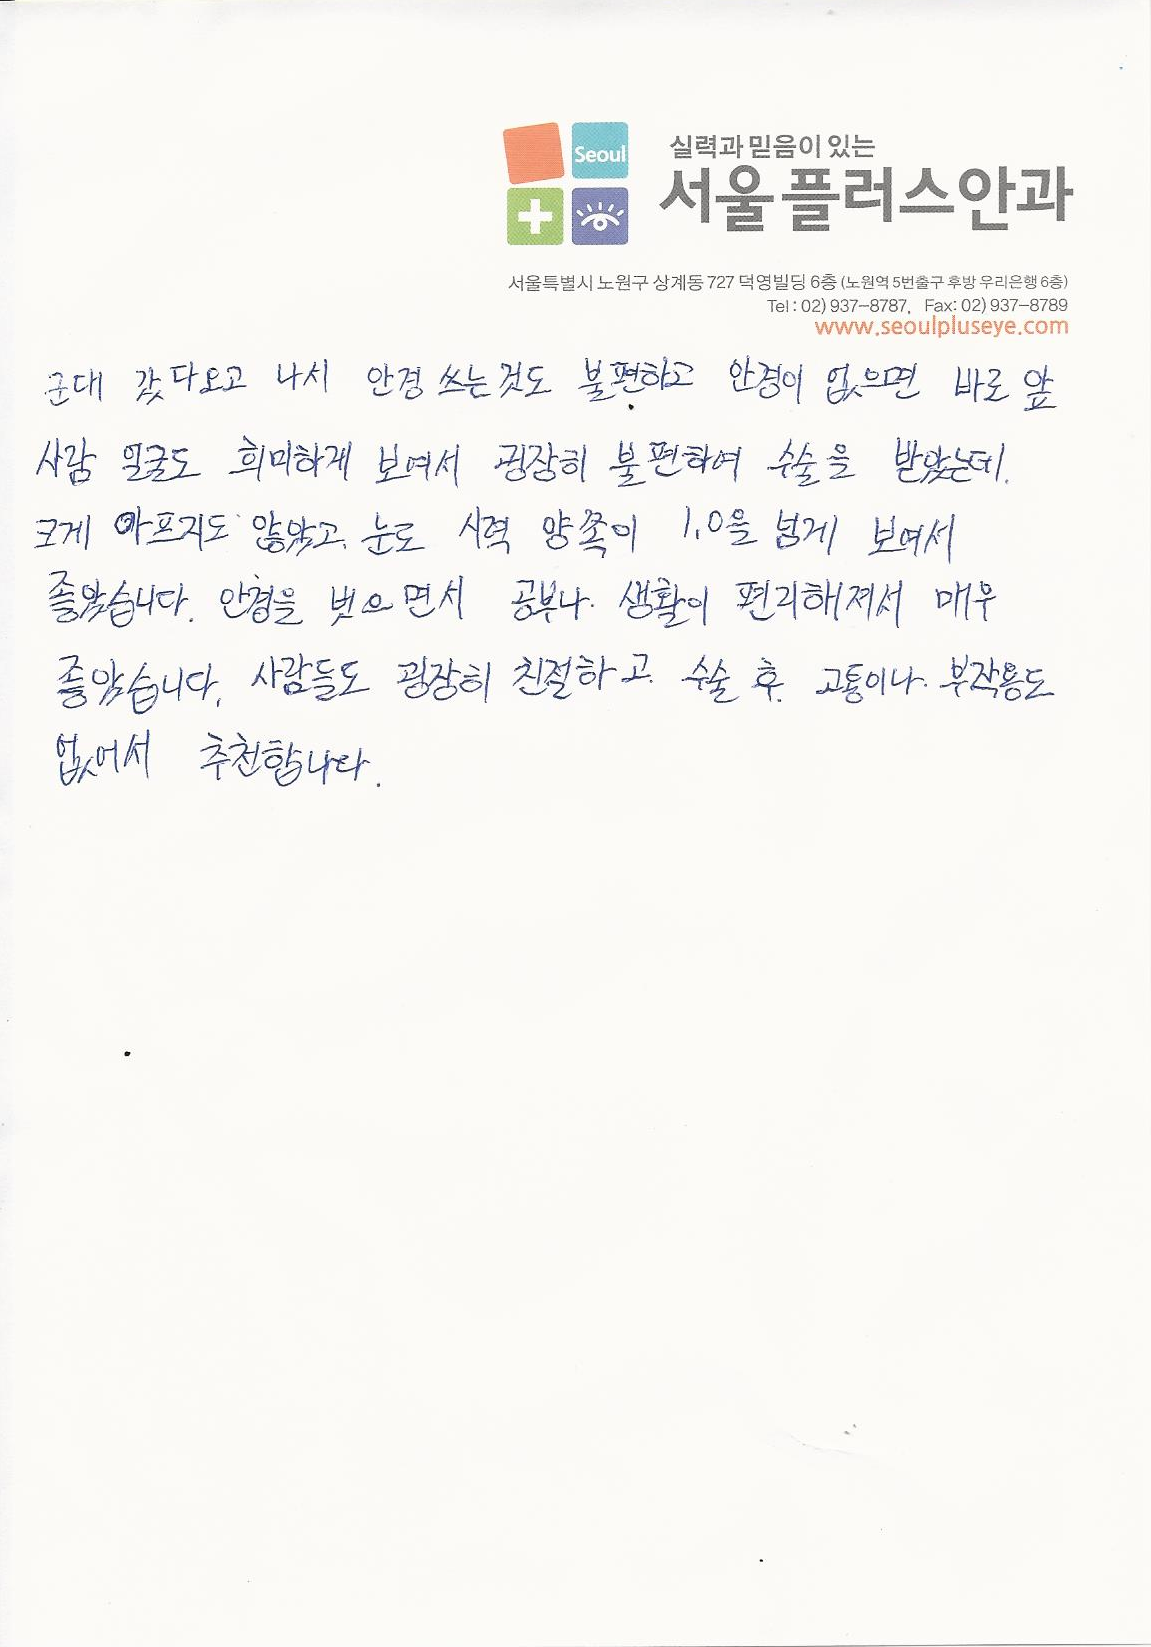 Seoul
실력과 믿음이 있는
서울플러스안과
서울특별시 노원구 상계동 727 덕영빌딩 6층 (노원역 5번출구 후방 우리은행 6층)
Tel : 02) 937-8787, Fax: 02) 937-8789
www.seoulpluseye.com
군대 갔다오고 나서 안경 쓰는것도 불편하고 안경이 없으면 바로 앞
사람 얼굴도 희미하게 보여서 굉장히 불편하여 수술을 받았는데.
크게 아프지도 않았고. 눈도 시력 양쪽이 1.0을 넘게 보여서
좋았습니다. 안경을 벗으면서 공부나. 생활이 편리해져서 매우
좋았습니다. 사람들도 굉장히 친절하고. 수술 후. 고통이나. 부작용도
없어서 추천합니다.